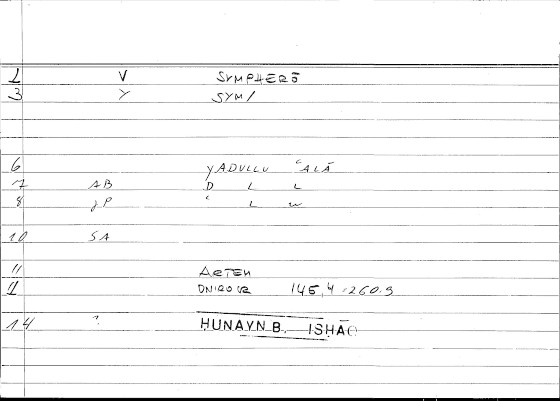 1 V SYMPHERŌ
3 Y SYM/
6 YADULLU ʿALĀ
7 AB D L L
8 JP ʿ L W
10 SA
11 ARTEM
11 ONIROCR 145,4 - 260.9
14 ? HUNAYN B. ISHĀQ